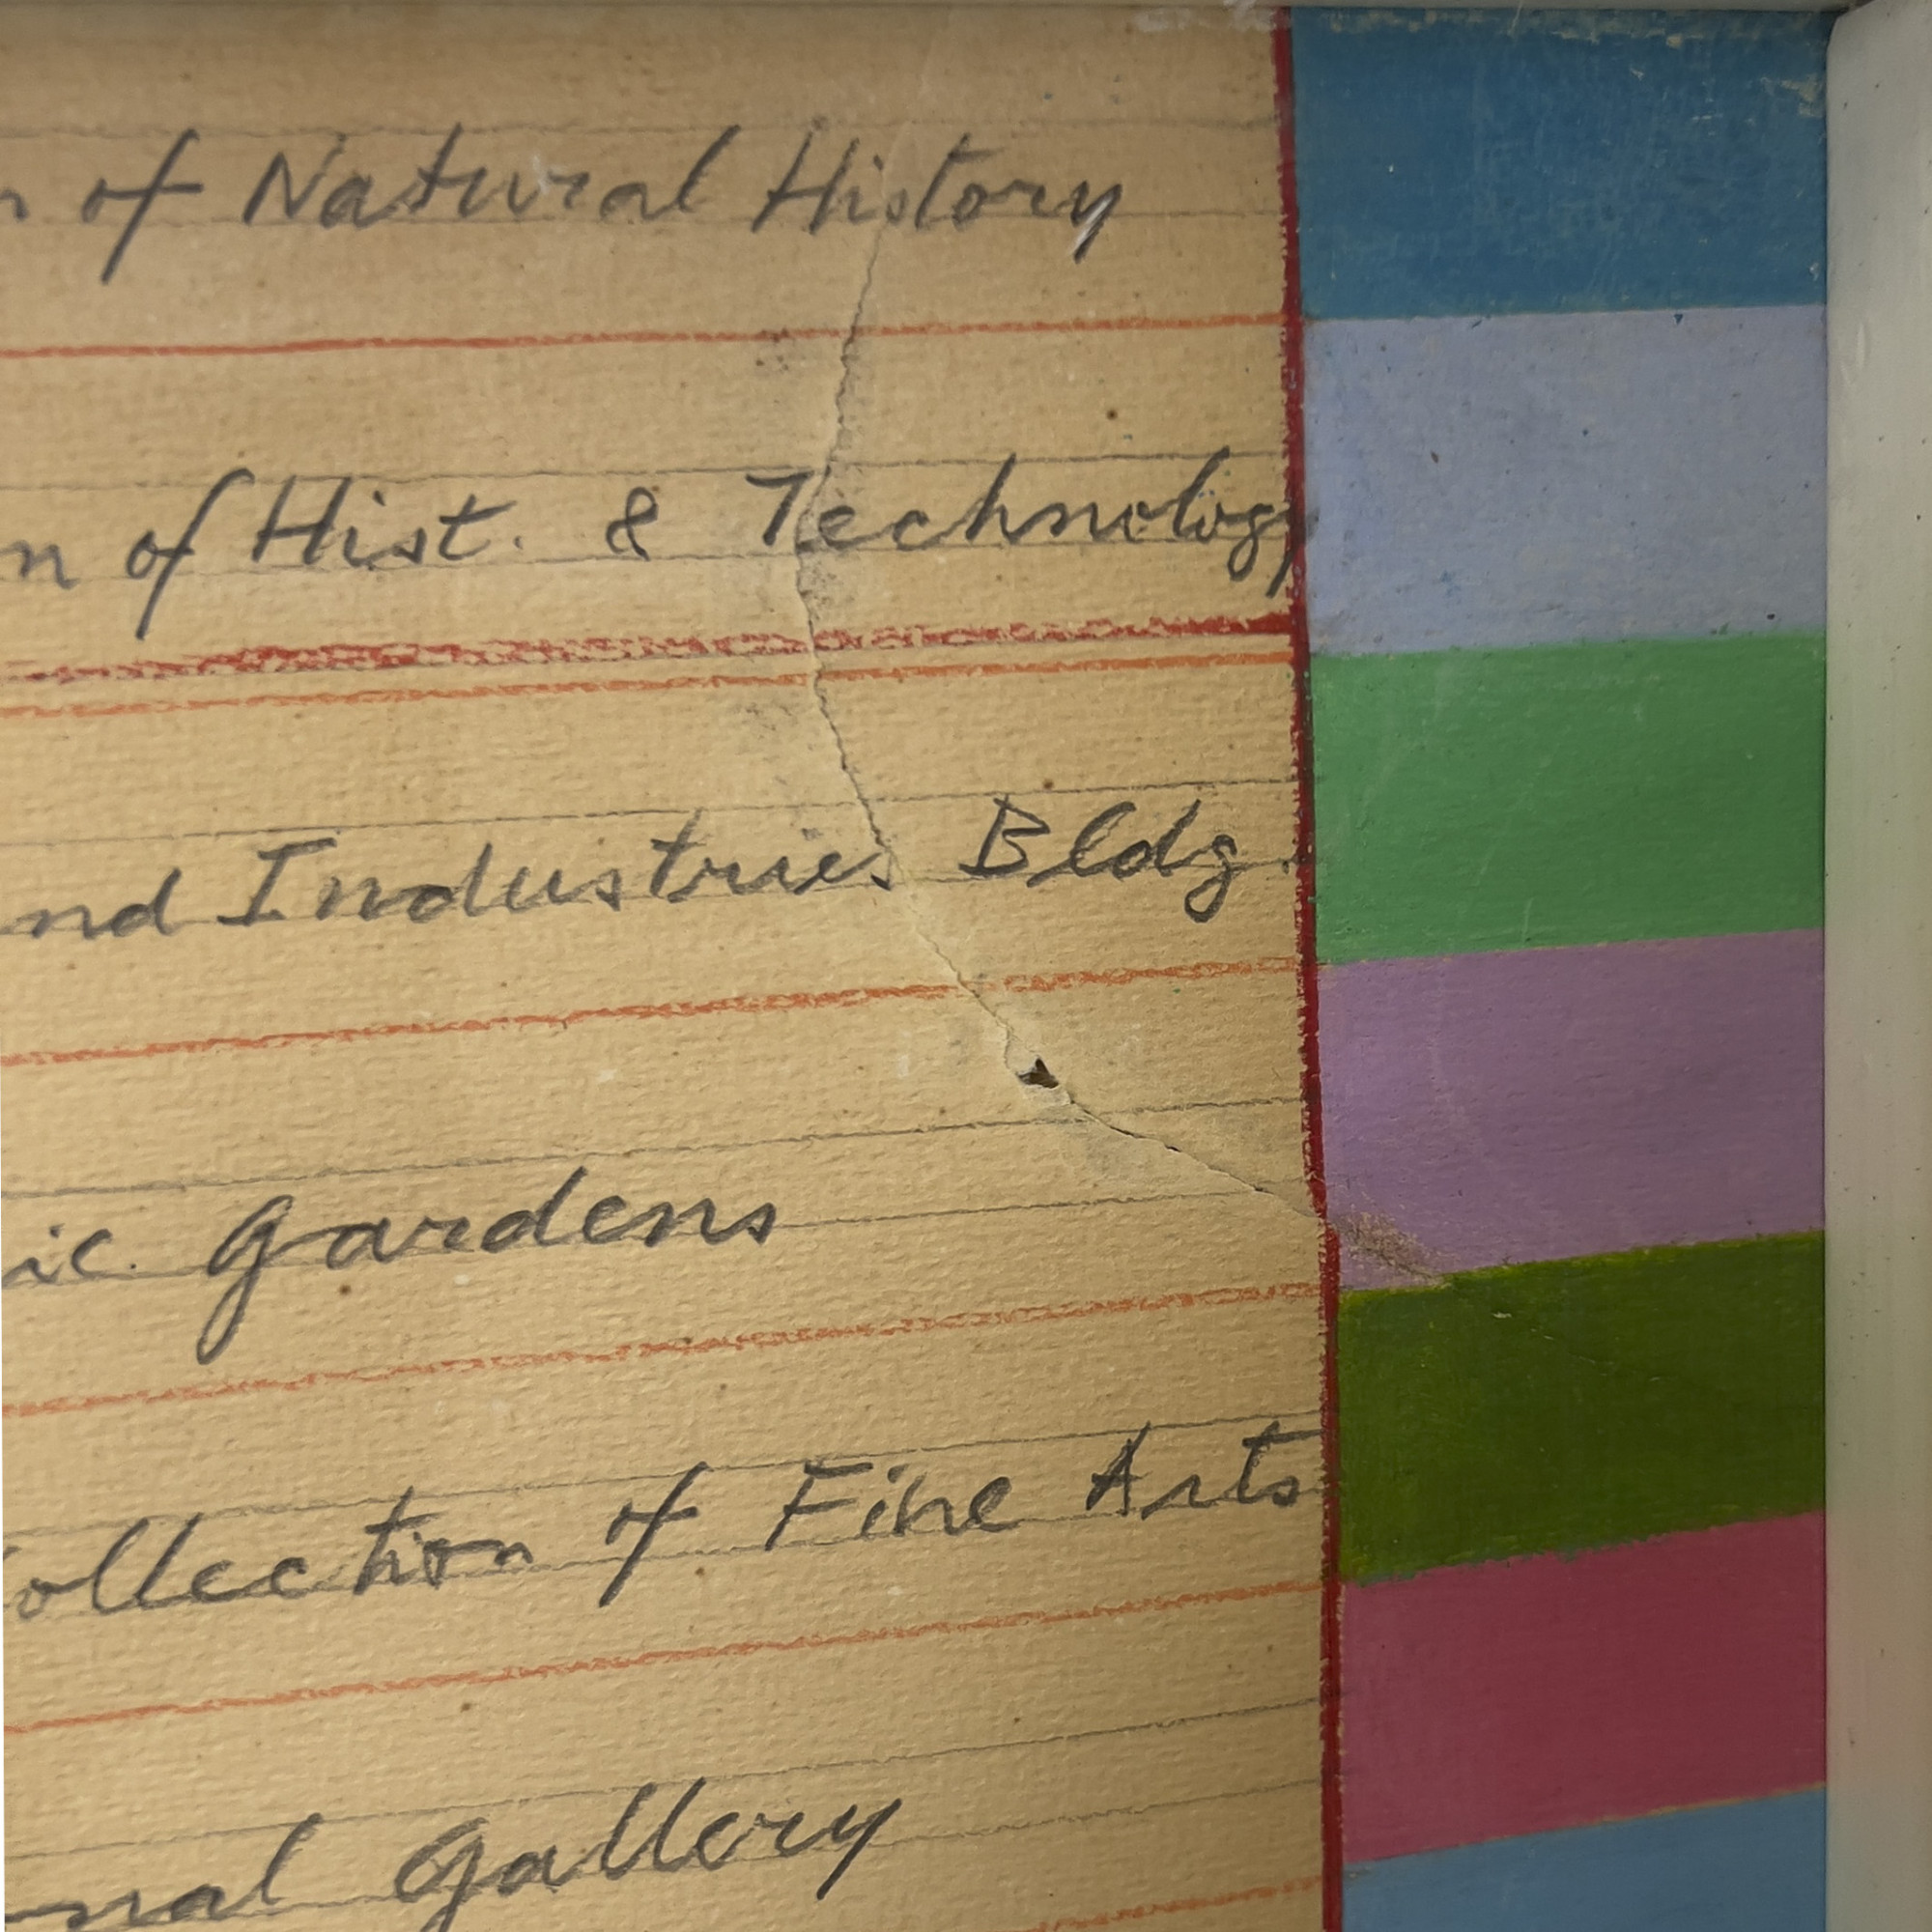 n of Natural History
n of Hist. & Technology
nd Industries Bldg.
ic Gardens
ollection of Fine Arts
nal Gallery